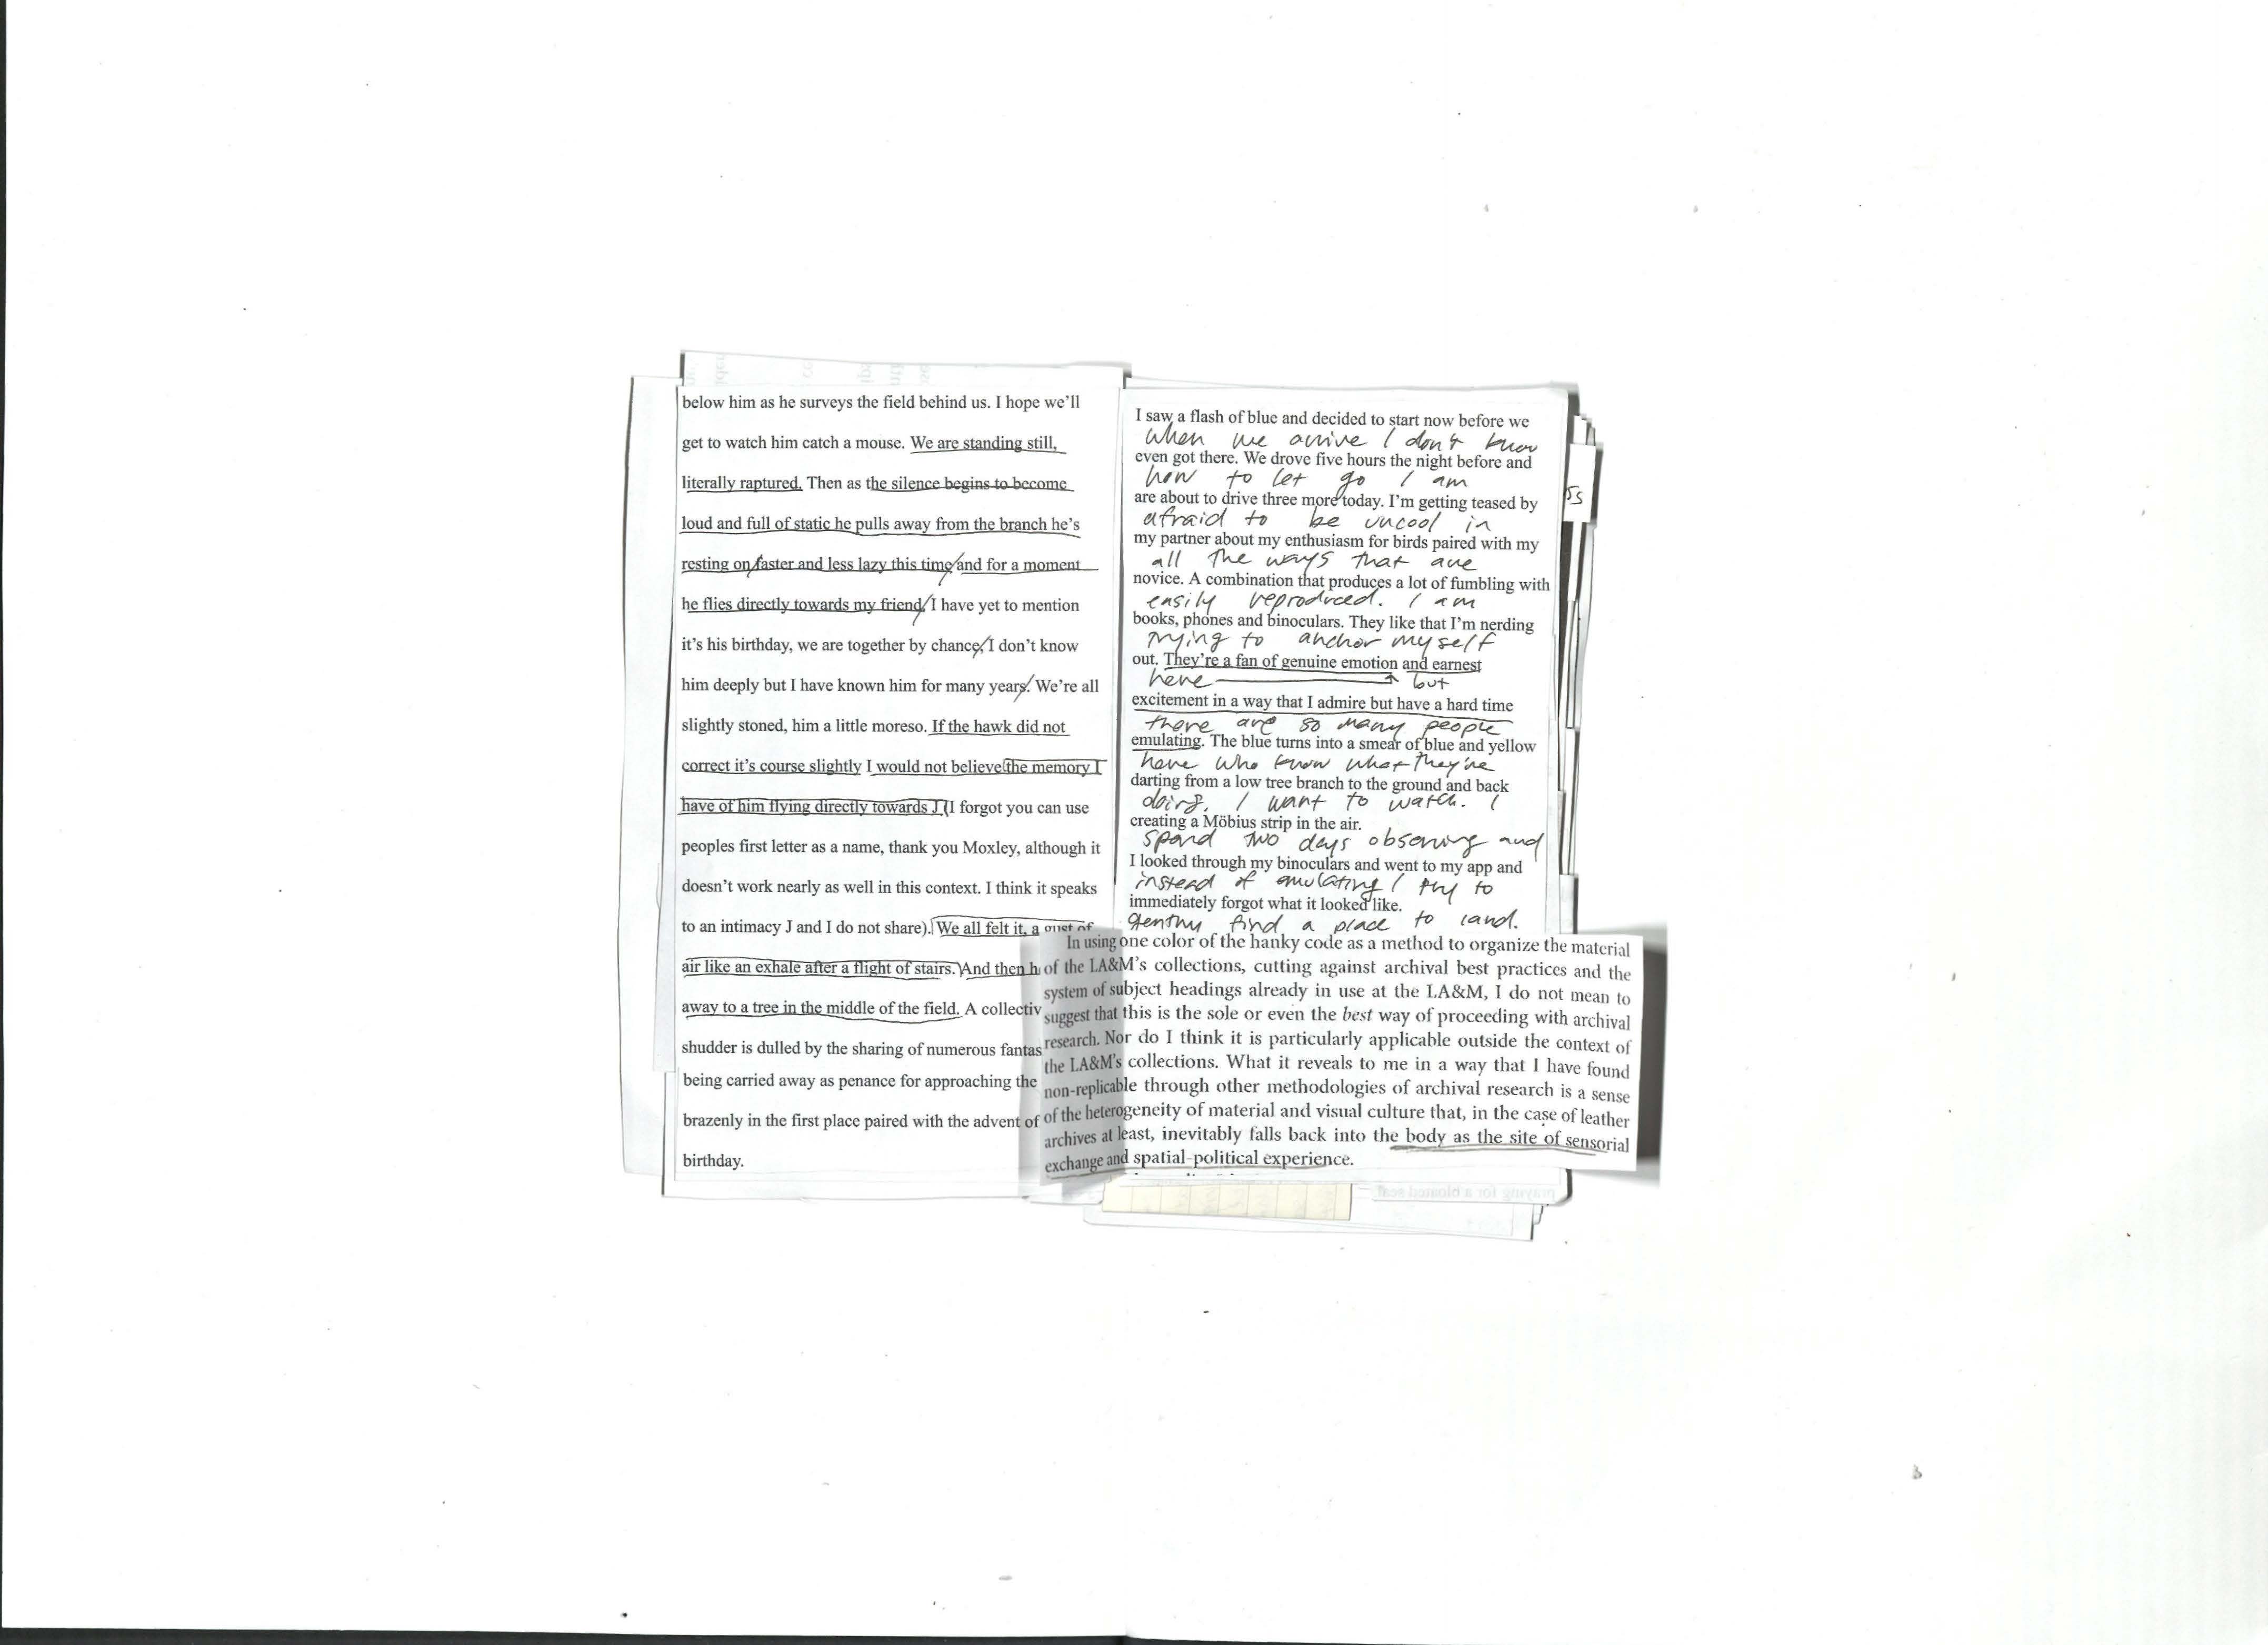 below him as he surveys the field behind us. I hope we'll
get to watch him catch a mouse. We are standing still,
literally raptured. Then as the silence begins to become
loud and full of static he pulls away from the branch he's
resting on/faster and less lazy this time/and for a moment
he flies directly towards my friend/I have yet to mention
it's his birthday, we are together by chance/I don't know
him deeply but I have known him for many years/We're all
slightly stoned, him a little moreso. If the hawk did not
correct it's course slightly I would not believe the memory I
have of him flying directly towards J (I forgot you can use
peoples first letter as a name, thank you Moxley, although it
doesn't work nearly as well in this context. I think it speaks
to an intimacy J and I do not share). We all felt it, a gust of
air like an exhale after a flight of stairs. And then h
away to a tree in the middle of the field. A collectiv
shudder is dulled by the sharing of numerous fantas
being carried away as penance for approaching the
brazenly in the first place paired with the advent of
birthday.
I saw a flash of blue and decided to start now before we
when we arrive I don't know
even got there. We drove five hours the night before and
how to let go I am
are about to drive three more today. I'm getting teased by
afraid to be uncool in
my partner about my enthusiasm for birds paired with my
all the ways that are
novice. A combination that produces a lot of fumbling with
easily reproduced. I am
books, phones and binoculars. They like that I'm nerding
trying to anchor myself
out. They're a fan of genuine emotion and earnest
here but
excitement in a way that I admire but have a hard time
there are so many people
emulating. The blue turns into a smear of blue and yellow
here who know what they're
darting from a low tree branch to the ground and back
doing. I want to watch. I
creating a Möbius strip in the air.
spend two days observing and
I looked through my binoculars and went to my app and
instead of emulating I try to
immediately forgot what it looked like.
gently find a place to land.
In using one color of the hanky code as a method to organize the material
of the LA&M's collections, cutting against archival best practices and the
system of subject headings already in use at the LA&M, I do not mean to
suggest that this is the sole or even the best way of proceeding with archival
research. Nor do I think it is particularly applicable outside the context of
the LA&M's collections. What it reveals to me in a way that I have found
non-replicable through other methodologies of archival research is a sense
of the heterogeneity of material and visual culture that, in the case of leather
archives at least, inevitably falls back into the body as the site of sensorial
exchange and spatial-political experience.